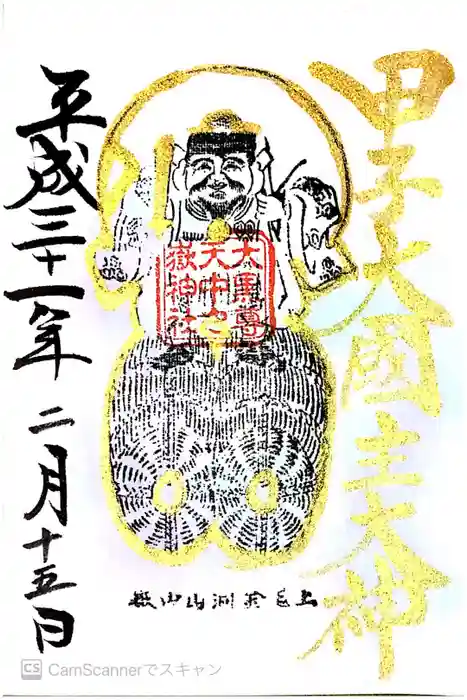 甲子大國主大神
大黒尊
天中之
嶽神社
上毛金洞山中嶽
平成三十一年 二月十五日
CS CamScannerでスキャン